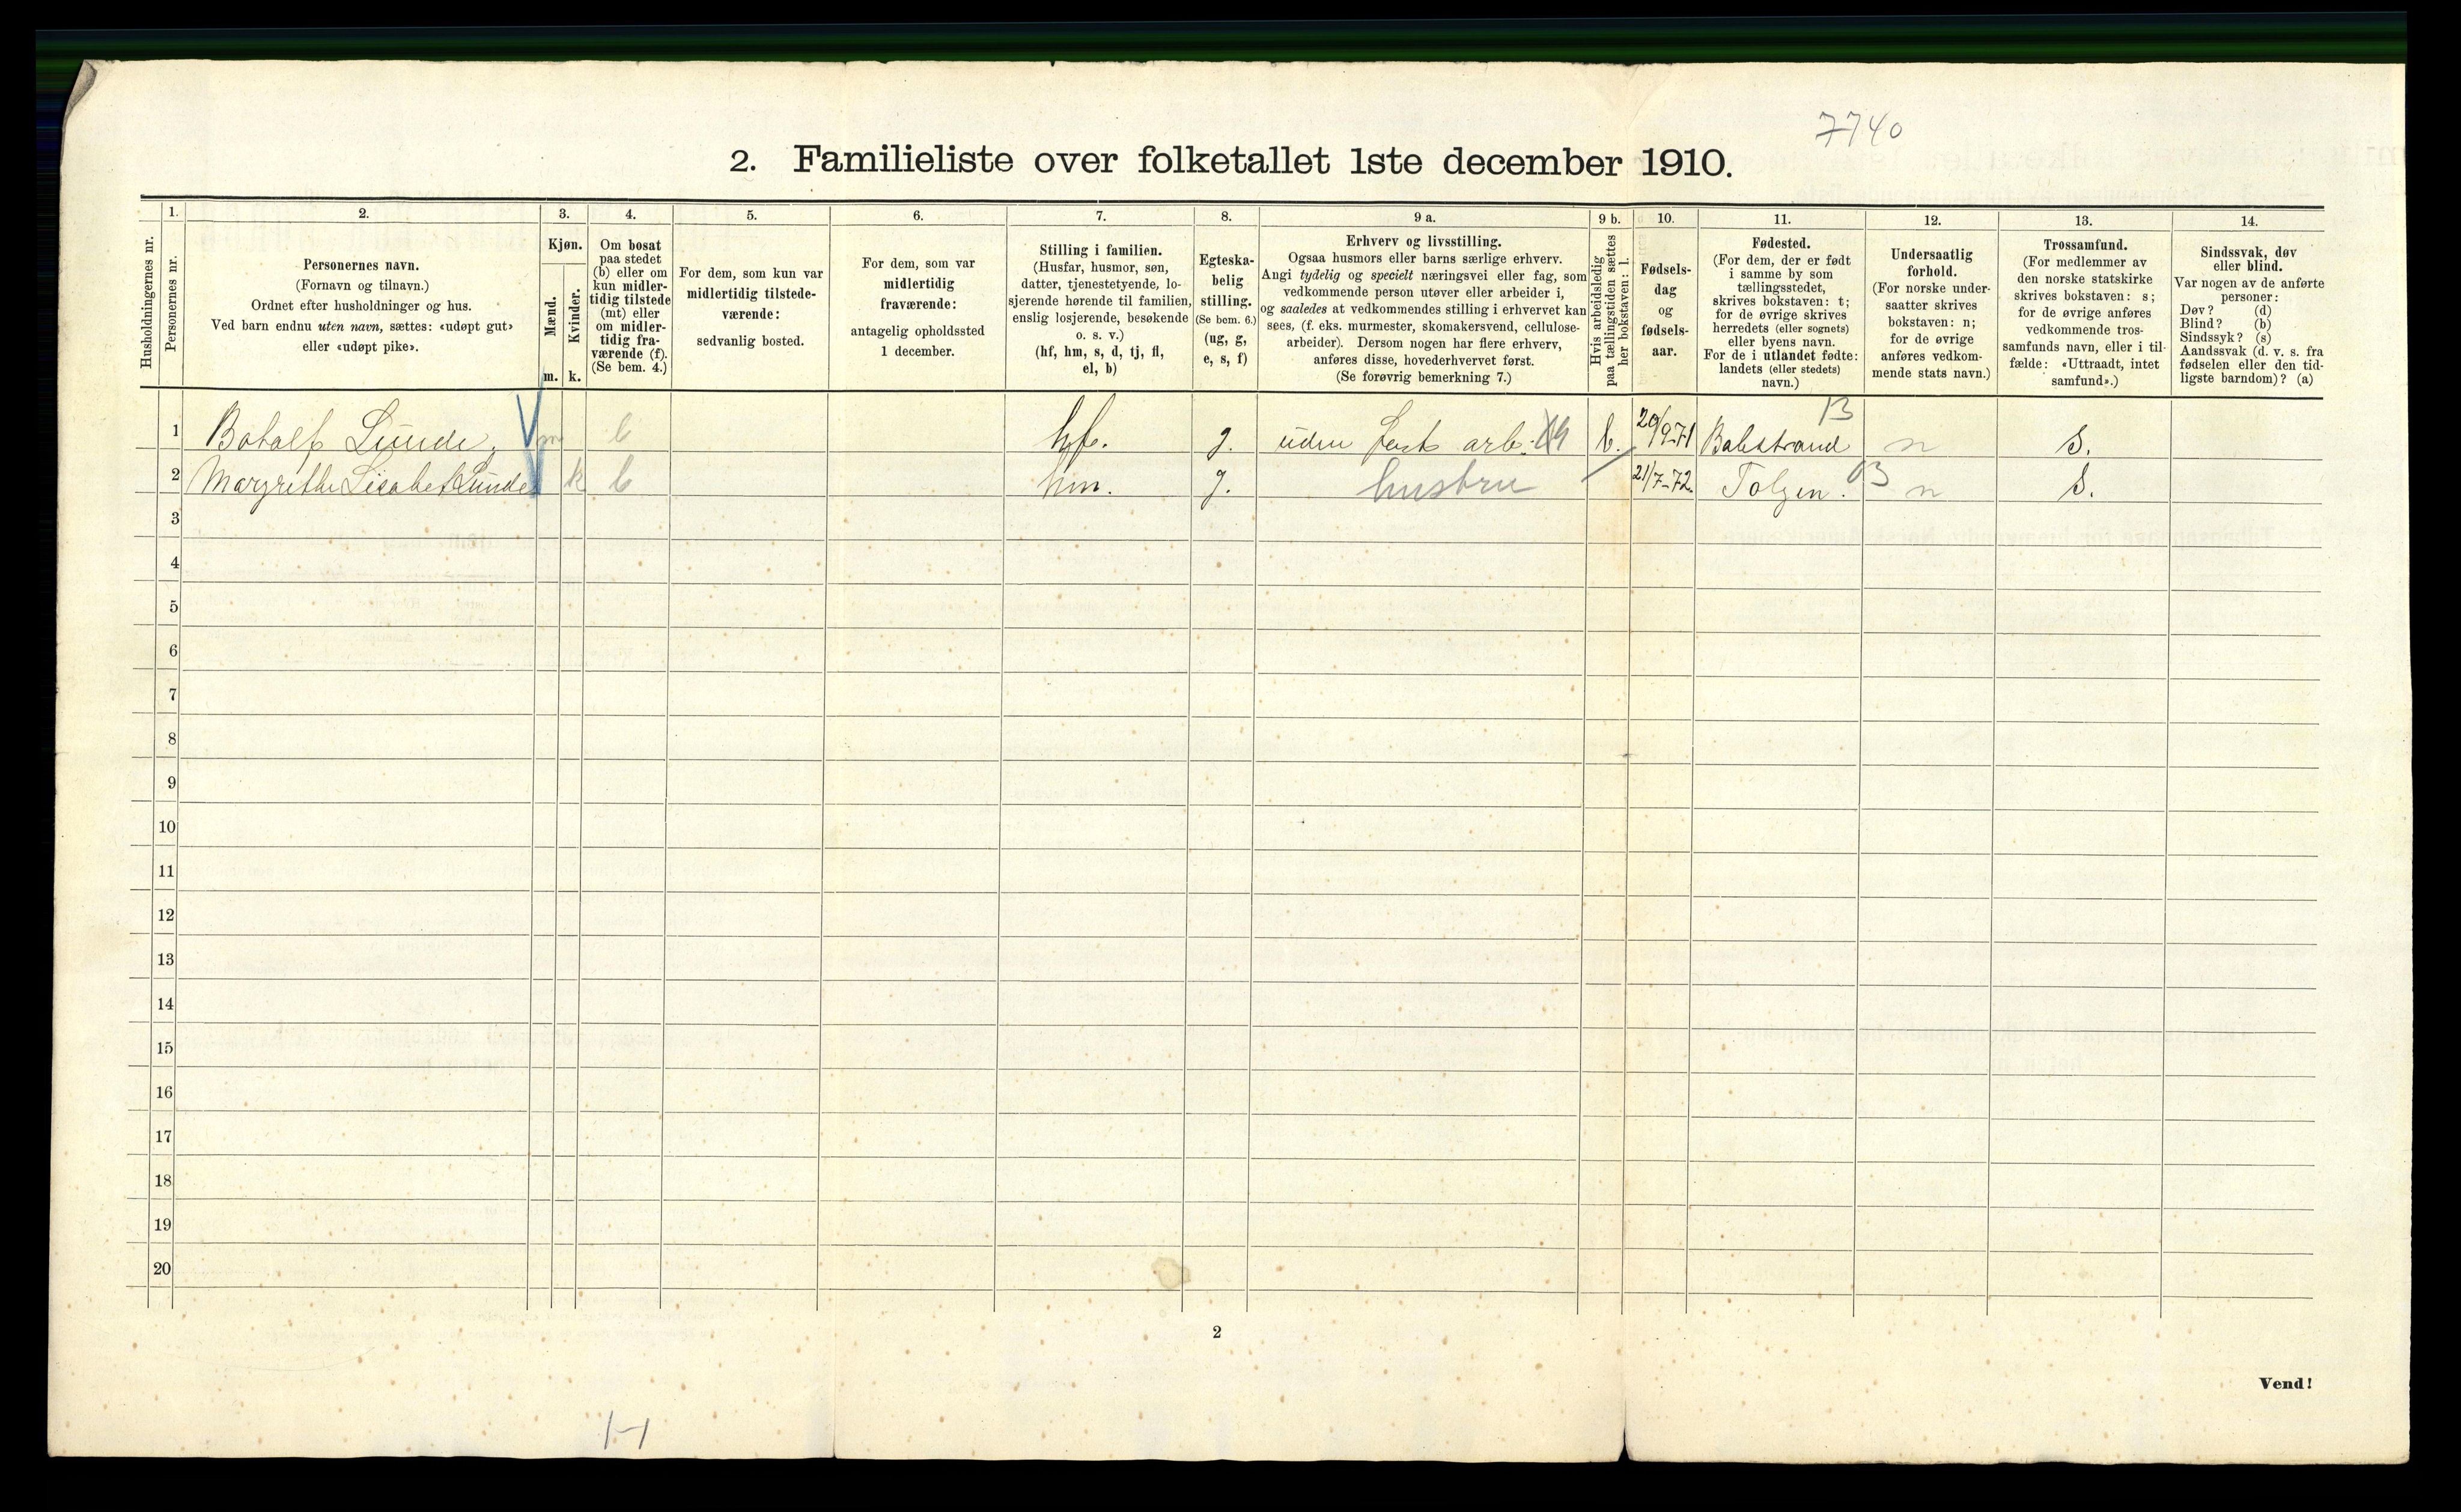 7740
2. Familieliste over folketallet 1ste december 1910.
Husholdningernes nr.
1.
Personernes nr.
2.
Personernes navn.
(Fornavn og tilnavn.)
Ordnet efter husholdninger og hus.
Ved barn endnu uten navn, sættes: «udøpt gut»
eller «udøpt pike».
3.
Kjøn.
Mænd.
Kvinder.
m. k.
4.
Om bosat
paa stedet
(b) eller om
kun midler-
tidig tilstede
(mt) eller
om midler-
tidig fra-
værende (f).
(Se bem. 4.)
5.
For dem, som kun var
midlertidig tilstede-
værende:
sedvanlig bosted.
6.
For dem, som var
midlertidig
fraværende:
antagelig opholdssted
1 december.
7.
Stilling i familien.
(Husfar, husmor, søn,
datter, tjenestetyende, lo-
sjerende hørende til familien,
enslig losjerende, besøkende
o. s. v.)
(hf, hm, s, d, tj, fl,
el, b)
8.
Egteska-
belig
stilling.
(Se bem. 6.)
(ug, g,
e, s, f)
9 a.
Erhverv og livsstilling.
Ogsaa husmors eller barns særlige erhverv.
Angi tydelig og specielt næringsvei eller fag, som
vedkommende person utøver eller arbeider i,
og saaledes at vedkommendes stilling i erhvervet kan
sees, (f. eks. murmester, skomakersvend, cellulose-
arbeider). Dersom nogen har flere erhverv,
anføres disse, hovederhvervet først.
(Se forøvrig bemerkning 7.)
9 b.
Hvis arbeidsledig
paa tællingstiden sættes
her bokstaven: l.
10.
Fødsels-
dag
og
fødsels-
aar.
11.
Fødested.
(For dem, der er født
i samme by som
tællingsstedet,
skrives bokstaven: t;
for de øvrige skrives
herredets (eller sognets)
eller byens navn.
For de i utlandet fødte:
landets (eller stedets)
navn.)
12.
Undersaatlig
forhold.
(For norske under-
saatter skrives
bokstaven: n;
for de øvrige
anføres vedkom-
mende stats navn.)
13.
Trossamfund.
(For medlemmer av
den norske statskirke
skrives bokstaven: s;
for de øvrige anføres
vedkommende tros-
samfunds navn, eller i til-
fælde: «Uttraadt, intet
samfund».)
14.
Sindssvak, døv
eller blind.
Var nogen av de anførte
personer:
Døv? (d)
Blind? (b)
Sindssyk? (s)
Aandssvak (d. v. s. fra
fødselen eller den tid-
ligste barndom)? (a)
1 Botolf Lunde. m b hf. g. uden fast arb. l. 20/9-71 Balestrand B n s.
2 Margrethe Lisabet Lunde k b hm. g. hustru 21/7-72. Tolgen. B n s.
3
4
5
6
7
8
9
10
11
12
13
14
15
16
17
18
19
20
2
Vend!
1-1